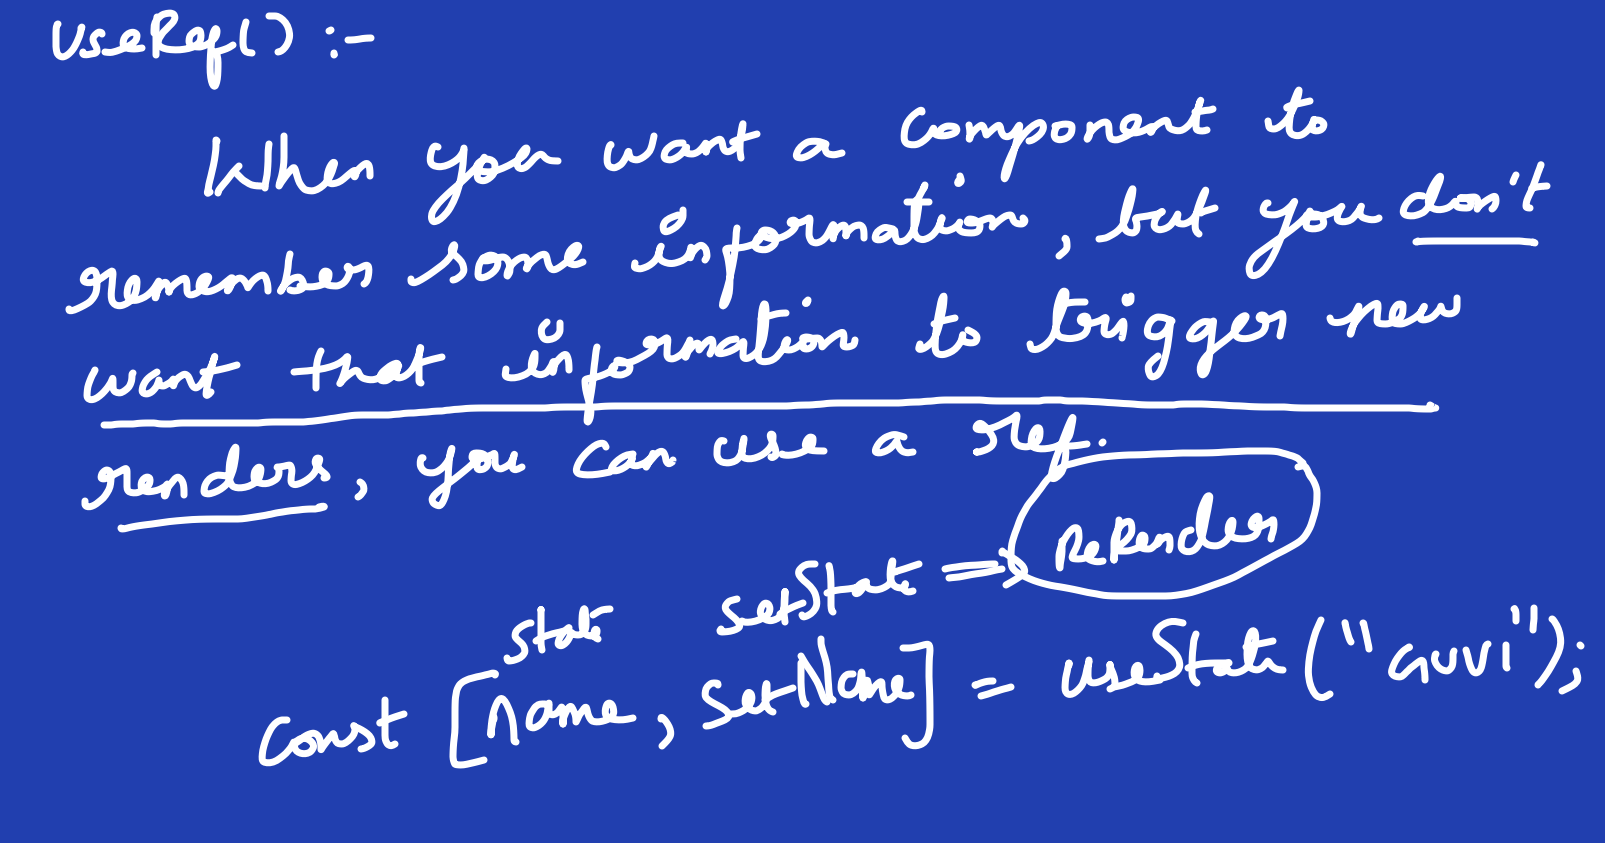 useRef() :-
When you want a component to
remember some information, but you don't
want that information to trigger new
renders, you can use a ref.
ReRender
state setState =>
const [name, setName] = useState("GUVI");